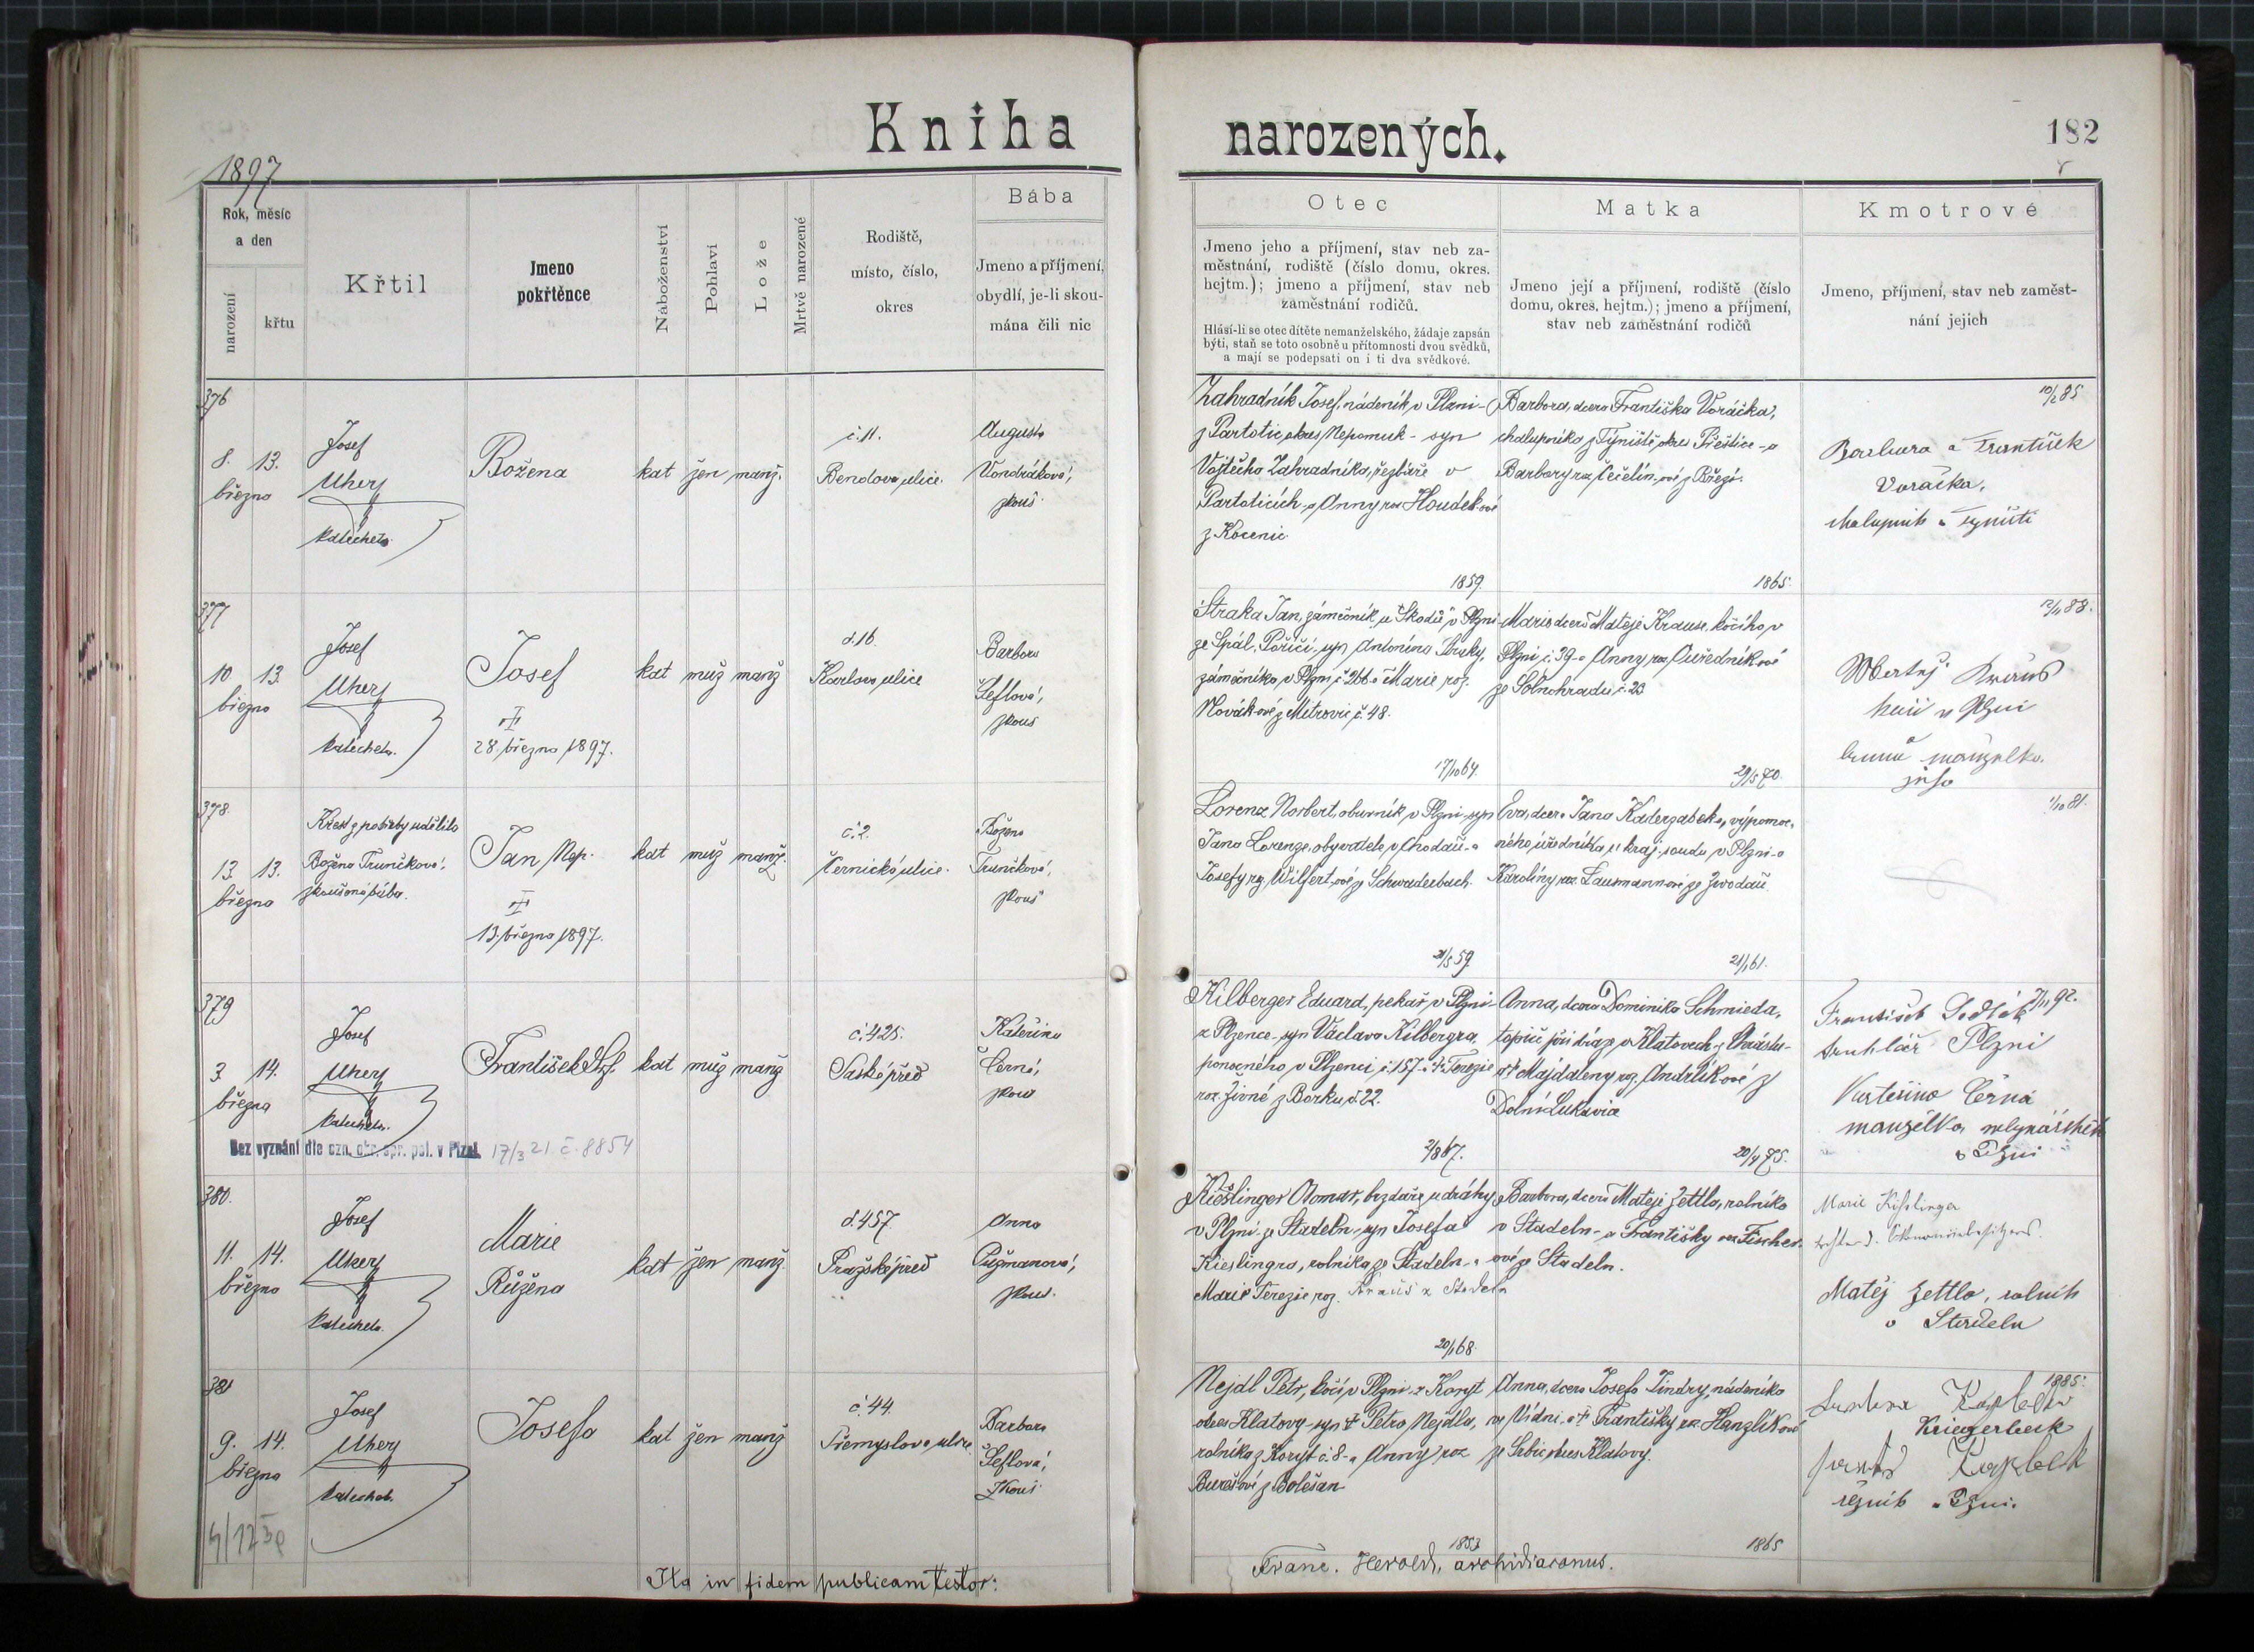 Kniha narozených.
182
1897
Rok, měsíc
a den
narození
křtu
Křtil
Jmeno
pokřtěnce
Náboženství
Pohlaví
Lože
Mrtvě narozené
Rodiště,
místo, číslo,
okres
Bába
Jmeno a příjmení,
obydlí, je-li skou-
mána čili nic
Otec
Jmeno jeho a příjmení, stav neb za-
městnání, rodiště (číslo domu, okres.
hejtm.); jmeno a příjmení, stav neb
zaměstnání rodičů.
Hlásí-li se otec dítěte nemanželského, žádaje zapsán
býti, staň se toto osobně u přítomnosti dvou svědků,
a mají se podepsati on i ti dva svědkové.
Matka
Jmeno její a příjmení, rodiště (číslo
domu, okres, hejtm.); jmeno a příjmení,
stav neb zaměstnání rodičů
Kmotrové
Jmeno, příjmení, stav neb zaměst-
nání jejich
376
8. 13.
března
Josef
Uherj
katecheta
Božena
kat žen manž.
č. 11.
Bendova ulice.
Augusta
Vondrákova,
zkouš.
Zahradník Josef, nádeník v Plzni -
z Partotic, okres Nepomuk - syn
Vojtěcha Zahradníka, řezbáře v
Partoticích - a Anny roz Houdek-ové
z Kocenic.
1859.
Barbora, dcera Františka Voráčka,
chalupníka z Týniště, okres Přeštice - a
Barbory roz. Čečelín-ové z Březí.
1865.
10/2 85
Barbara a František
Voráčka,
chalupník z Týniště
377
10 13.
března
Josef
Uherj
katecheta.
Josef
28. března 1897.
kat muž manž
č. 16.
Karlova ulice
Barbora
Šeflová,
zkouš
Straka Jan, zámečník u Škodů v Plzni -
ze Spál. Poříčí, syn Antonína Straky,
zámečníka v Plzni č. 266 a Marie roz.
Novák-ové z Mitrovic č. 48.
17/10 64.
Marie dcera Matěje Krause, kočího v
Plzni č. 39 - a Anny roz. Ouředník-ové
ze Solnohradu č. 23
29/5 70.
Kraus
kočí v Plzni
a
manželka
jeho
378.
13. 13.
března
Křest z potřeby udělila
Božena Trunčková,
zkoušená bába.
Jan Nep.
13. března 1897.
kat muž manž.
č. 2.
Černická ulice.
Božena
Trunčková,
zkouš
Lorenz Norbert, obuvník v Plzni - syn
Jana Lorenze, obyvatele v Chodau - a
Josefy roz. Wilfert-ové z Schwaderbach.
21/5 59.
Eva, dcera Jana Kaderzabeka, výpomoc-
ného úředníka u kraj. soudu v Plzni - a
Karolíny roz. Lausmannové ze Zwodau.
21/1 61.
1/10 81.
379
3. 14.
března
Josef
Uherj
katecheta.
Bez vyznání dle ozn. okr. spr. pol. v Plzni. 17/3 21 č. 8854
František
kat muž manž
č. 425.
Saské před
Kateřina
Černá,
zkouš
Kilberger Eduard, pekař v Plzni -
z Plzence - syn Václava Kilbergra,
ponocného v Plzenci č. 157 - a † Terezie
roz. Živné z Borku č. 22.
2/8 67.
Anna, dcera Dominika Schmieda,
topiče při dráze v Klatovech z Chrástu -
a † Majdaleny roz. Andrlíkové z
Dolní Lukavice
20/4 75.
František Sedlák
truhlář Plzni
Kateřina Černá
manželka
v Plzni
380.
11. 14.
března
Josef
Uherj
katecheta.
Marie
Růžena
kat žen manž.
č. 457.
Pražské před
Anna
Pužmanová,
zkouš.
Kieslinger Otomar, brzdař u dráhy
v Plzni ze Stadeln - syn Josefa
Kieslingra, rolníka ze Stadeln - a
Marie Terezie roz. Kraus z Stadeln
20/1 68.
Barbora, dcera Matěje Zettla, rolníka
v Stadeln - a Františky roz. Fischer-
ové ze Stadeln.
Marie Kißlinger
Matěj Zettla, rolník
v Stadeln
381
9. 14.
března
Josef
Uherj
katechet.
Josefa
kat žen manž
č. 44.
Přemyslova ulice.
Barbora
Šeflová,
zkouš.
Nejdl Petr, kočí v Plzni z Koryt
okres Klatovy - syn † Petra Nejdla,
rolníka z Koryt č. 8 - a Anny roz
Burešové z Bolešan
1853
Anna, dcera Josefa Jindry, nádeníka
ve Vídni - a † Františky roz. Hanzlíkové
ze Srbic okres Klatovy.
1865
1885.
Kriegerbeck
řezník v Plzni.
Ita in fidem publicam testor:
Franc. Herold, archidiaconus.